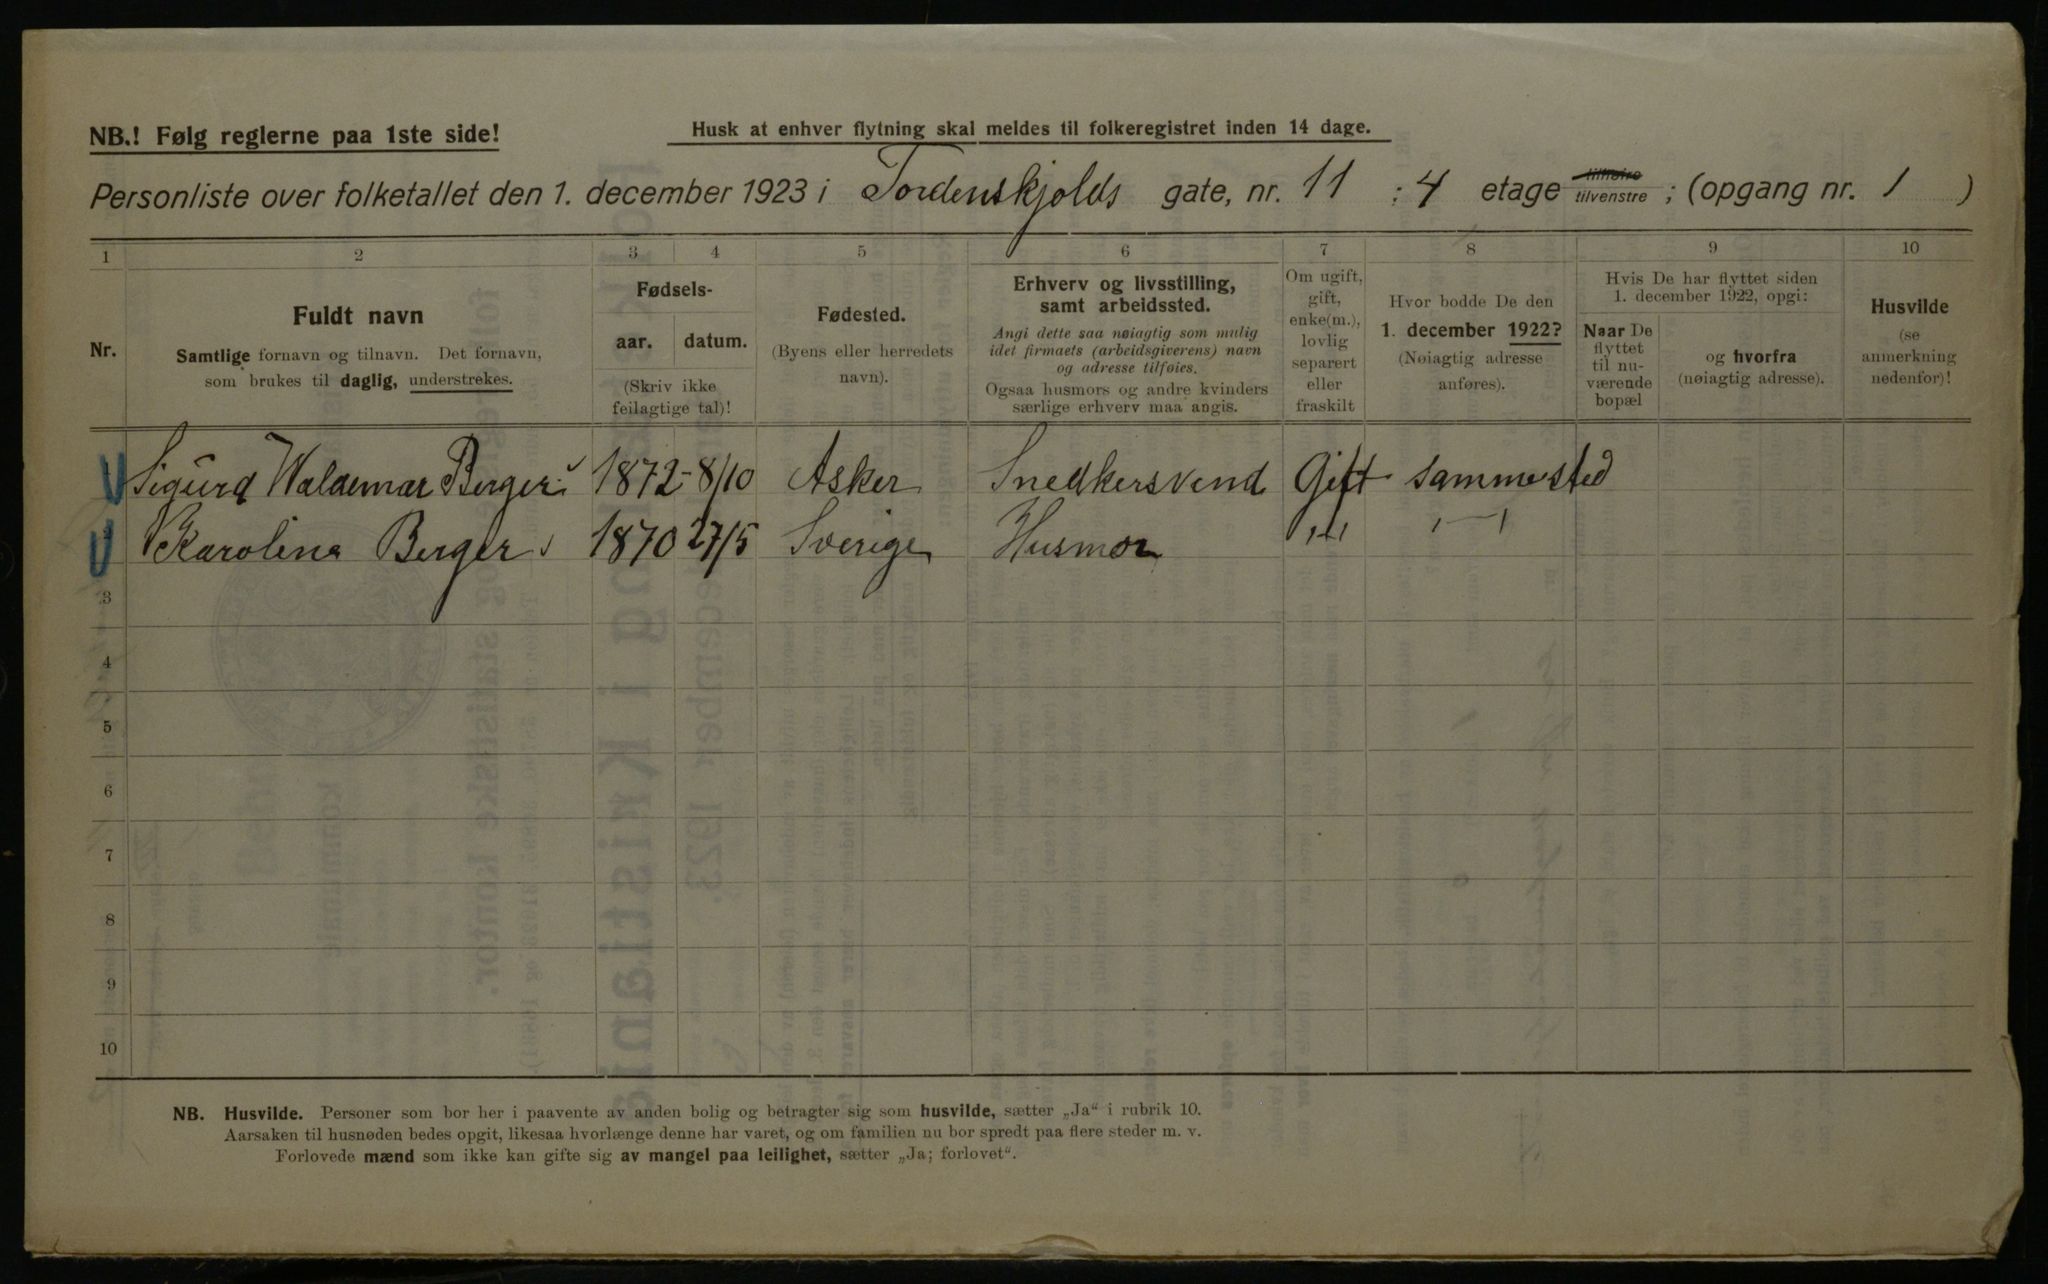 NB.! Følg reglerne paa 1ste side!
Husk at enhver flytning skal meldes til folkeregistret inden 14 dage.
Personliste over folketallet den 1. december 1923 i Tordenskjolds gate, nr. 11 : 4 etage tilhøire tilvenstre ; (opgang nr. 1 )
1 2 3 4 5 6 7 8 9 10
Nr.
Fuldt navn
Samtlige fornavn og tilnavn. Det fornavn,
som brukes til daglig, understrekes.
Fødsels-
aar. datum.
(Skriv ikke
feilagtige tal)!
Fødested.
(Byens eller herredets
navn).
Erhverv og livsstilling,
samt arbeidssted.
Angi dette saa nøiagtig som mulig
idet firmaets (arbeidsgiverens) navn
og adresse tilføies.
Ogsaa husmors og andre kvinders
særlige erhverv maa angis.
Om ugift,
gift,
enke(m.),
lovlig
separert
eller
fraskilt
Hvor bodde De den
1. december 1922?
(Nøiagtig adresse
anføres).
Hvis De har flyttet siden
1. december 1922, opgi:
Naar De
flyttet
til nu-
værende
bopæl
og hvorfra
(nøiagtig adresse).
Husvilde
(se
anmerkning
nedenfor)!
Sigurd Waldemar Berger 1872 - 8/10 Asker Snedkersvend Gift sammested
Karolina Berger 1870 27/5 Sverige Husmor " — "
3
4
5
6
7
8
9
10
NB. Husvilde. Personer som bor her i paavente av anden bolig og betragter sig som husvilde, sætter „Ja“ i rubrik 10.
Aarsaken til husnøden bedes opgit, likesaa hvorlænge denne har varet, og om familien nu bor spredt paa flere steder m. v.
Forlovede mænd som ikke kan gifte sig av mangel paa leilighet, sætter „Ja; forlovet“.